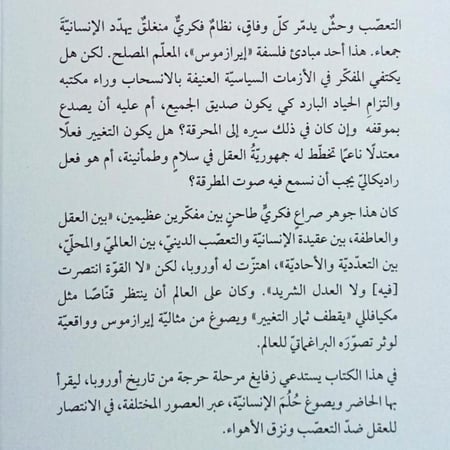 التعصّب وحشٌ يدمّر كلّ وفاقٍ، نظامٌ فكريٌّ منغلقٌ يهدّد الإنسانيّةَ
جمعاء. هذا أحد مبادئ فلسفة «إيرازموس»، المعلّم المصلح. لكن هل
يكتفي المفكّر في الأزمات السياسيّة العنيفة بالانسحاب وراء مكتبه
والتزامِ الحياد البارد كي يكون صديق الجميع، أم عليه أن يصدع
بموقفه وإن كان في ذلك سيره إلى المحرقة؟ هل يكون التغيير فعلًا
معتدلًا ناعمًا تخطّط له جمهوريّةُ العقل في سلامٍ وطمأنينة، أم هو فعل
راديكاليّ يجب أن نسمع فيه صوت المطرقة؟
كان هذا جوهر صراعٍ فكريٍّ طاحنٍ بين مفكّرين عظيمين، «بين العقل
والعاطفة، بين عقيدة الإنسانيّة والتعصّب الدينيّ، بين العالميّ والمحلّي،
بين التعدّديّة والأحاديّة»، اهتزّت له أوروبا، لكن «لا القوّة انتصرت
[فيه] ولا العدل الشريد». وكان على العالم أن ينتظر قنّاصًا مثل
مكيافللي «يقطف ثمار التغيير» ويصوغ من مثاليّة إيرازموس وواقعيّة
لوثر تصوّرَه البراغماتيّ للعالم.
في هذا الكتاب يستدعي زفايغ مرحلة حرجة من تاريخ أوروبا، ليقرأ
بها الحاضر ويصوغ حُلُمَ الإنسانيّة، عبر العصور المختلفة، في الانتصار
للعقل ضدّ التعصّب ونزق الأهواء.